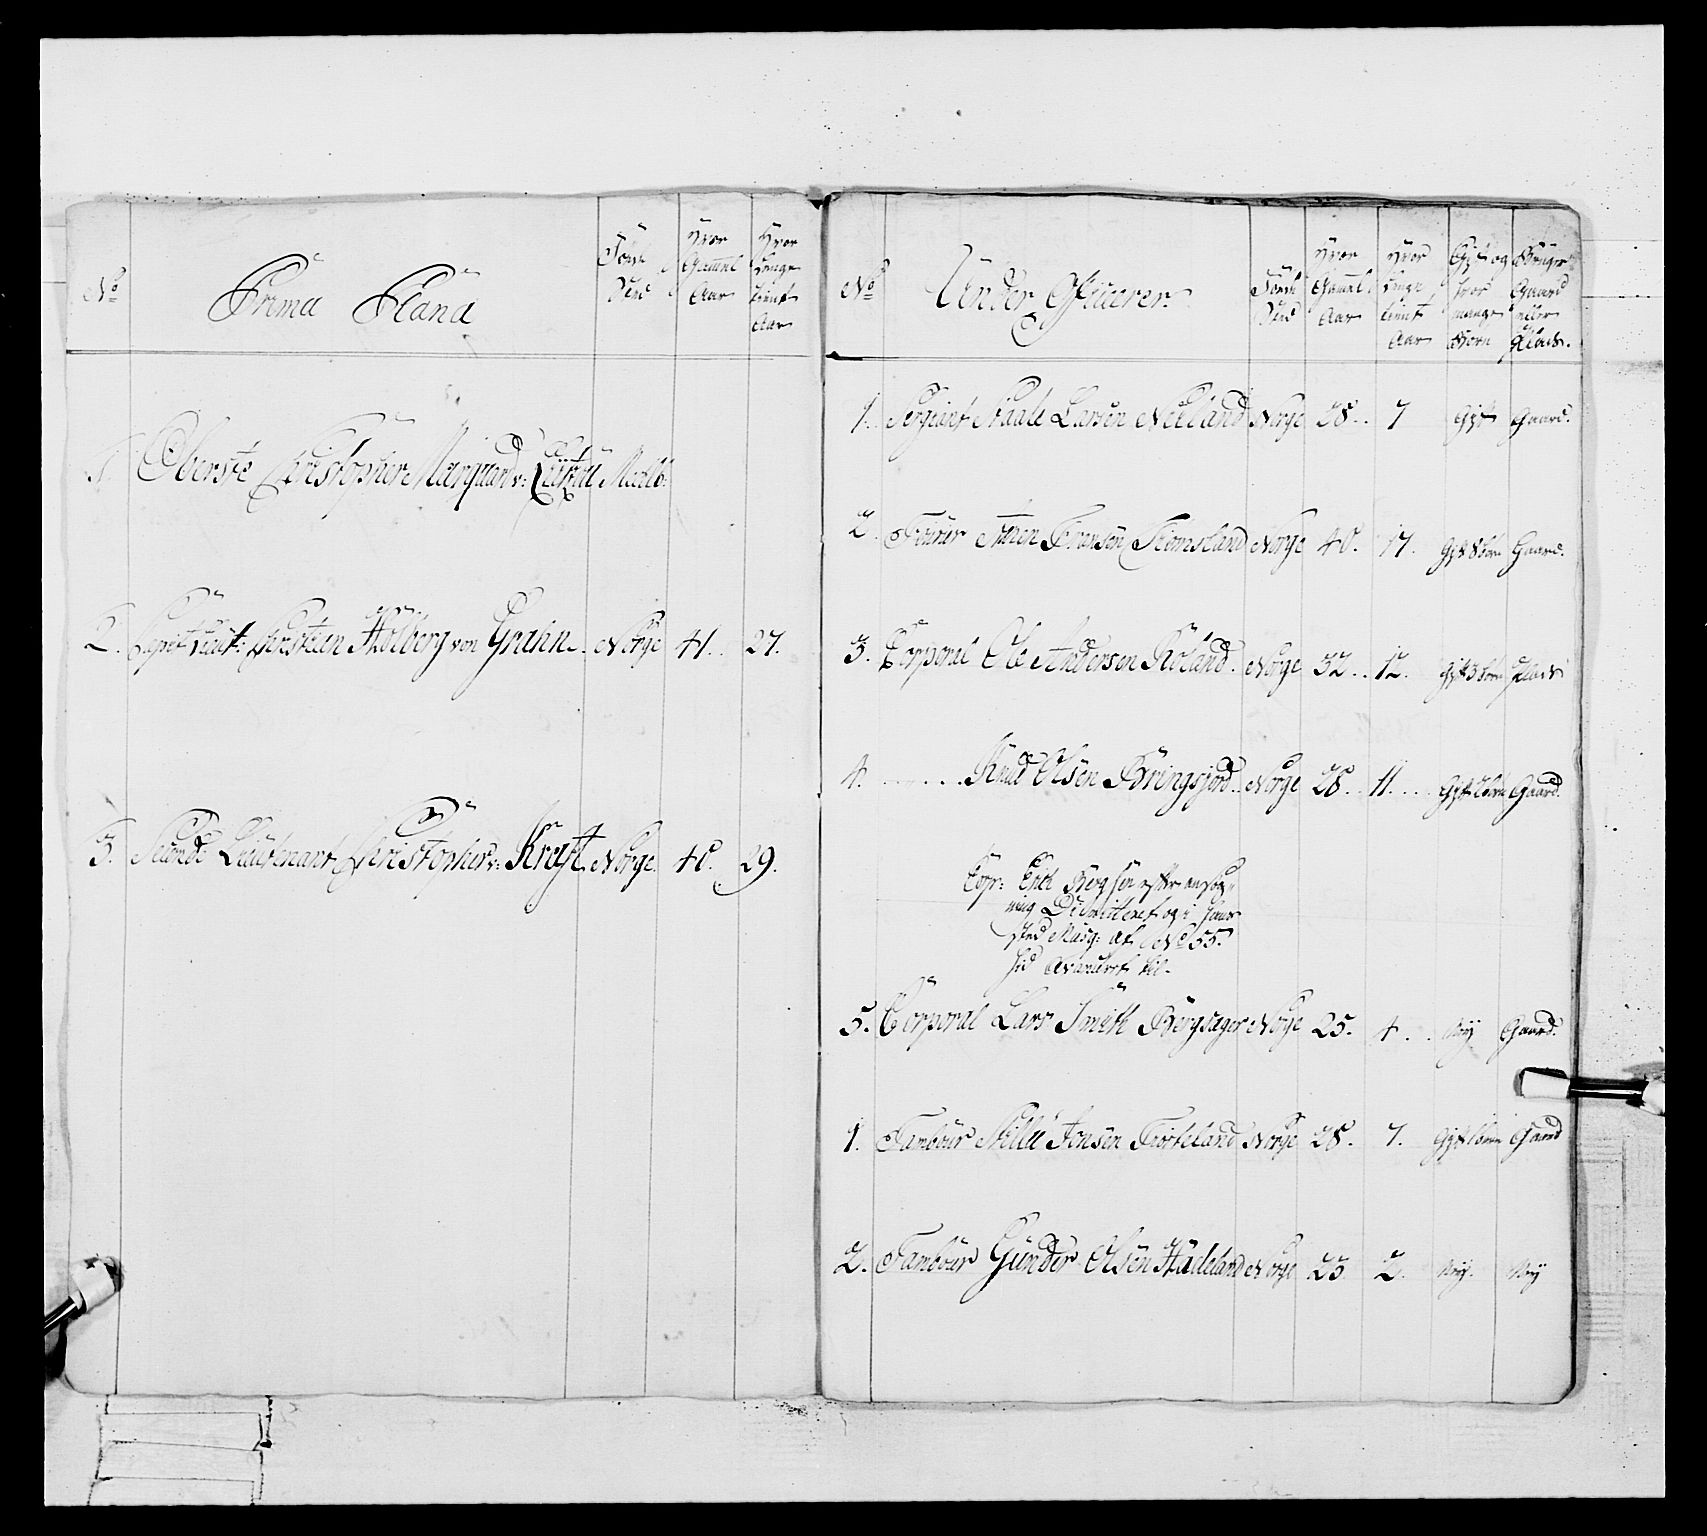 No
Prima Plana
Föde
Sted
Hvor
Gamel
Aar
Hvor
lenge
tient
Aar
1. Oberste Christopher Marquard v: Lützou Meckb:
2. Capit Lieut: Christian Holberg von Grahn. Norge 41. 27.
3. Seconde Lieutenant Christopher v: Kraft Norge. 48. 29.
No
Under Officerer.
Föde
Sted
Hvor
Gamel
Aar
Hvor
lenge
tient
Aar
Gift og
hvor
mange
Børn
Bruger
Gaard
eller
Plads.
1. Sergiant Staale Larsen Netland Norge 28.. 7 Gift Gaard.
2. Fourier Steen Fransen Stomsland Norge 40. 17. Gift 8 børn Gaard.
3. Corporal Ole Andersen Röland. Norge 32.. 12. Gift 3 børn Plads
4. Knud Olsen Bringsjord. Norge 28.. 11. Gift 2 børn Gaard.
Corp: Erich Berg efter ansög-
ning Dimitteret og i hans
sted Musq: af No 55.
hid Avanceret til.
5. Corporal Lars Smith Bergsager Norge 25. 4.. Nej Gaard.
1. Tambour Nille Jonsen Fiorteland Norge 28. 7. Gift 1 børn Gaard
2. Tambour Gunder Olsen Hadeland Norge 23 2. Nej. Nej